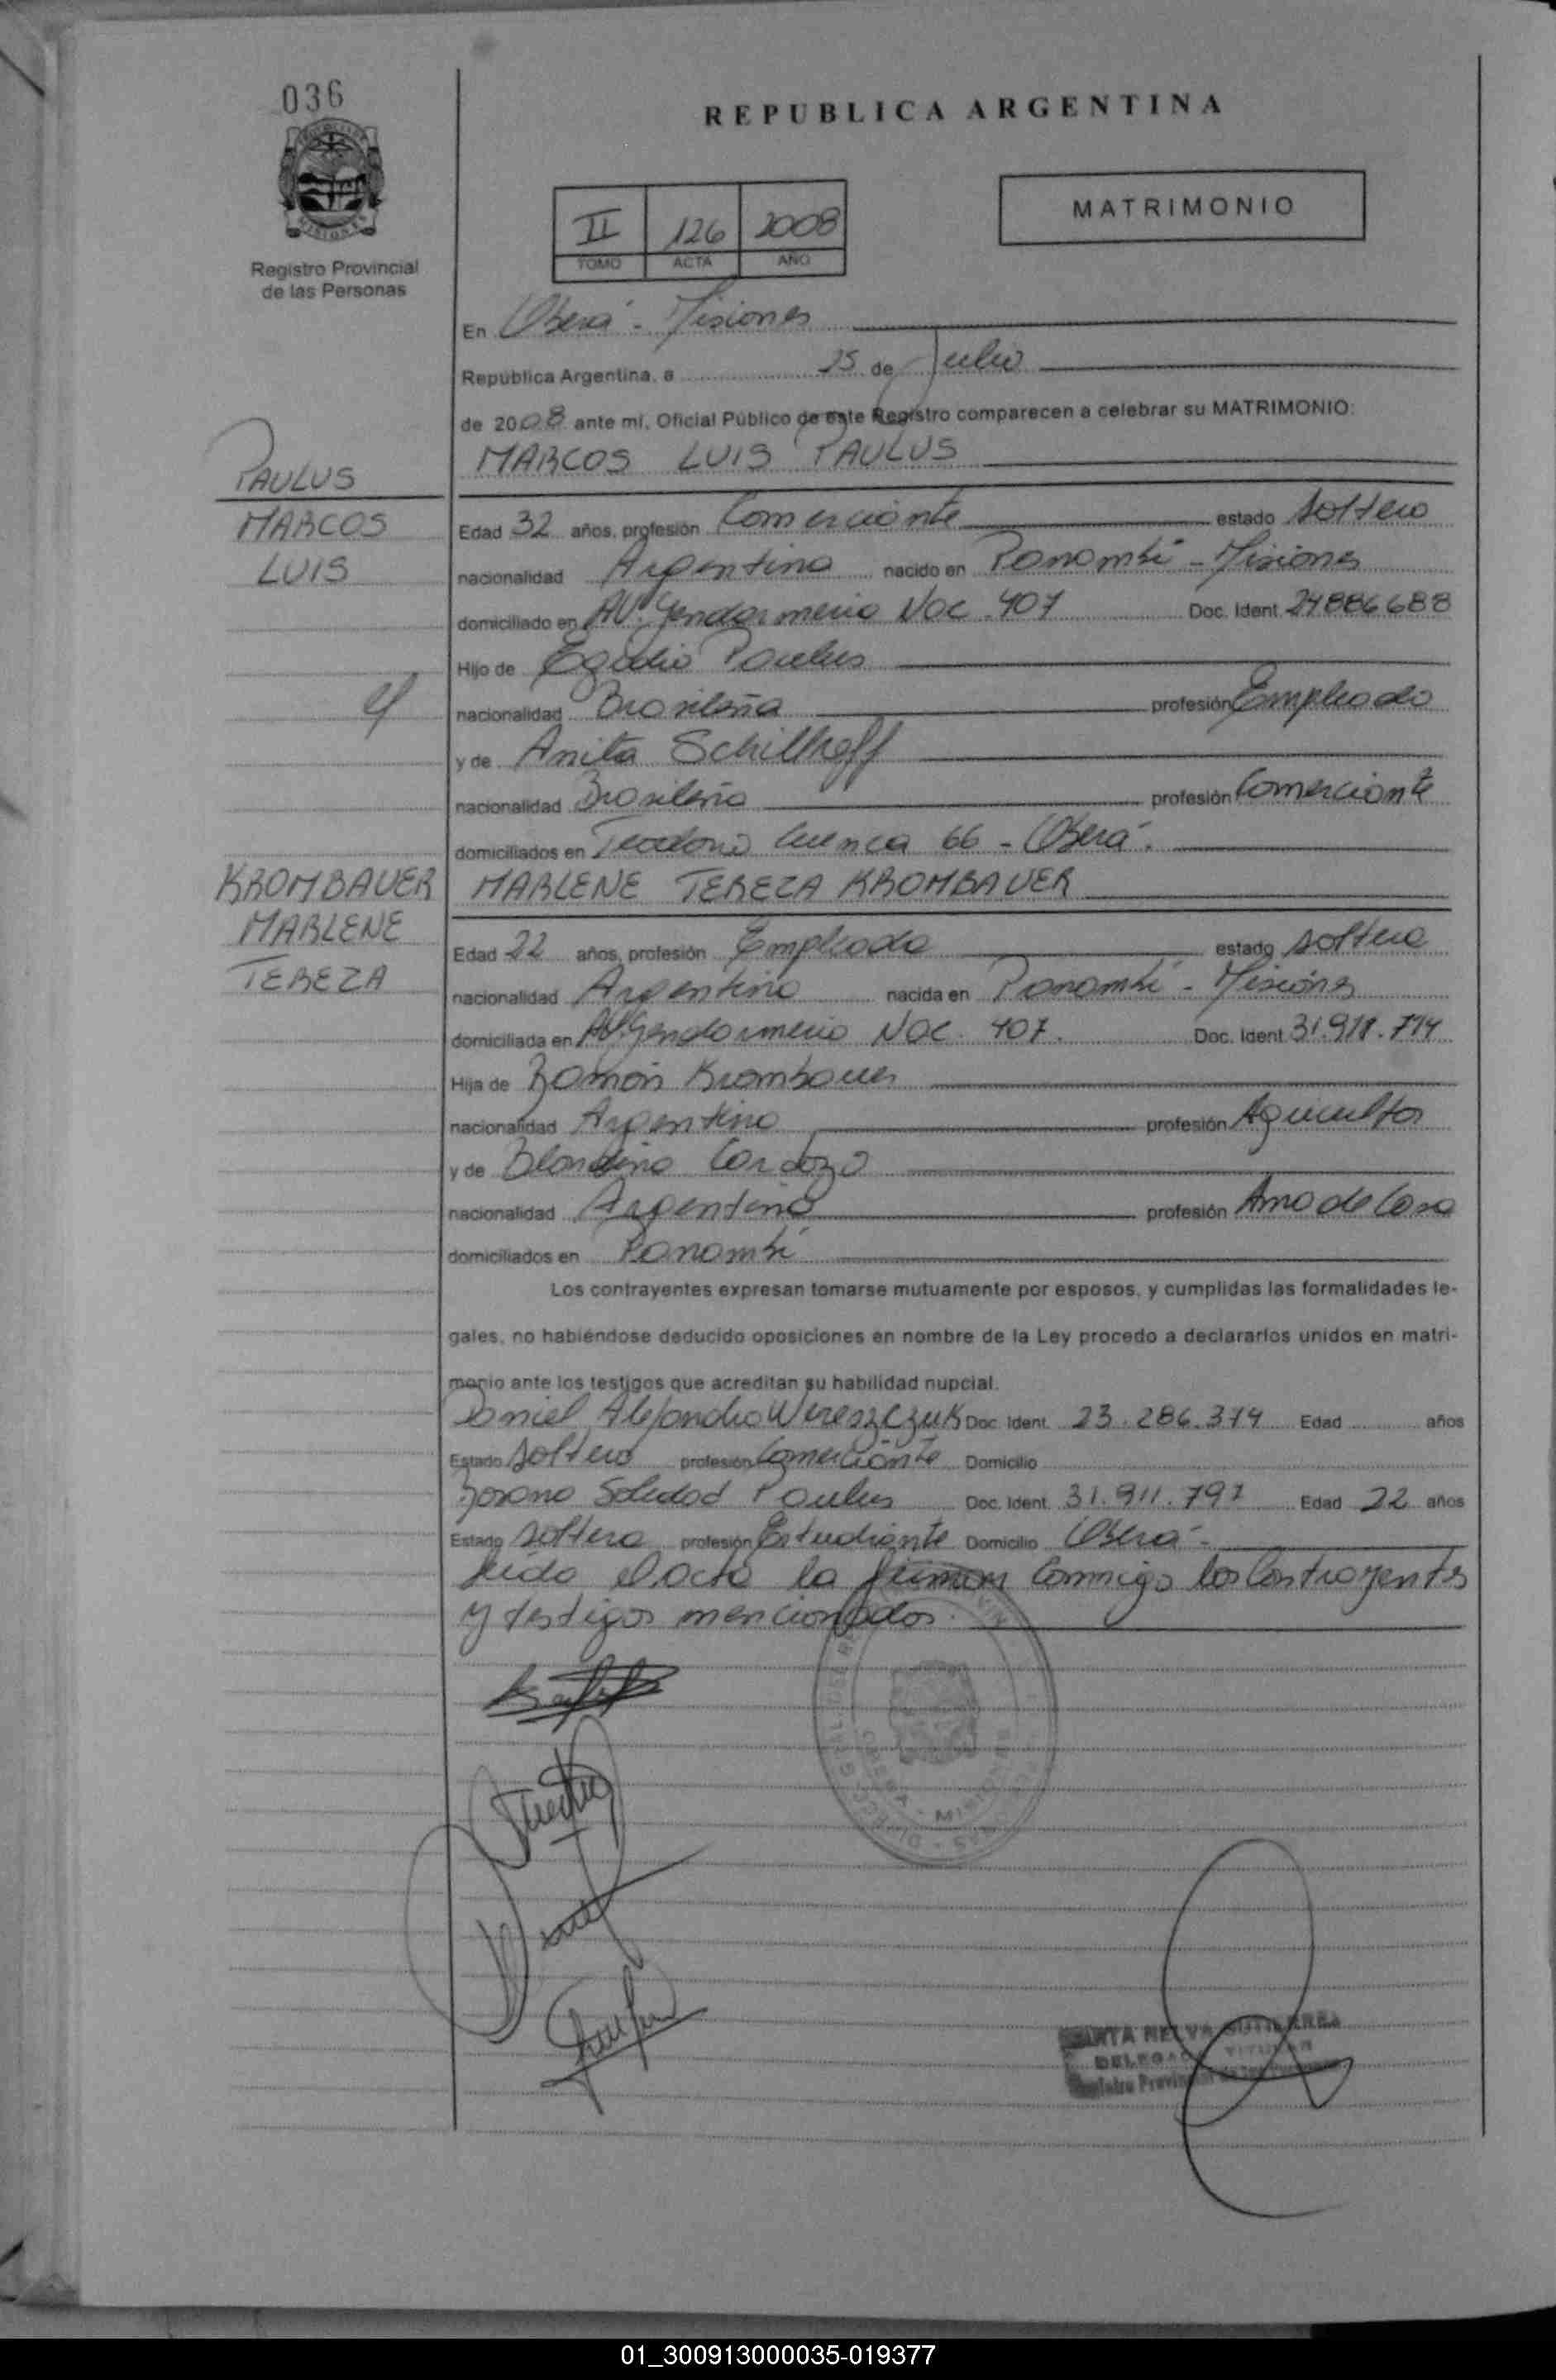 036
REPUBLICA ARGENTINA
Registro Provincial
de las Personas
II 126 2008
TOMO ACTA AÑO
MATRIMONIO
En Oberá - Misiones
República Argentina, a 25 de Julio
de 2008 ante mí, Oficial Público de este Registro comparecen a celebrar su MATRIMONIO:
PAULUS
MARCOS
LUIS
MARCOS LUIS PAULUS
Edad 32 años, profesión Comerciante estado soltero
nacionalidad Argentina nacido en Panambí - Misiones
domiciliado en AV. Gendarmeria Nac. 407 Doc. Ident. 24886688
Hijo de Egidio Paulus
nacionalidad Brasileña profesión Empleado
y de Anita Schilkoff
nacionalidad Brasileña profesión Comerciante
domiciliados en Teodoro Cuenca 66 - Oberá.
KROMBAUER
MARLENE
TEREZA
MARLENE TEREZA KROMBAUER
Edad 22 años, profesión Empleada estado soltera
nacionalidad Argentina nacida en Panambí - Misiones
domiciliada en AV. Gendarmeria Nac. 407. Doc. Ident. 31.911.714
Hija de Ramón Krombauer
nacionalidad Argentina profesión Agricultor
y de Blondina Cardozo
nacionalidad Argentina profesión Ama de Casa
domiciliados en Panambí
Los contrayentes expresan tomarse mutuamente por esposos, y cumplidas las formalidades le-
gales, no habiéndose deducido oposiciones en nombre de la Ley procedo a declararlos unidos en matri-
monio ante los testigos que acreditan su habilidad nupcial.
Daniel Alejandro Wereszczuk Doc. Ident. 23.286.374 Edad años
Estado soltero profesión Comerciante Domicilio
Soledad Paulus Doc. Ident. 31.911.797 Edad 22 años
Estado soltera profesión Estudiante Domicilio Oberá -
Leído el acta la firman conmigo los contrayentes
y testigos mencionados.
MISIONES
DELEGADA TITULAR
Registro Provincial de las Personas
01_300913000035-019377